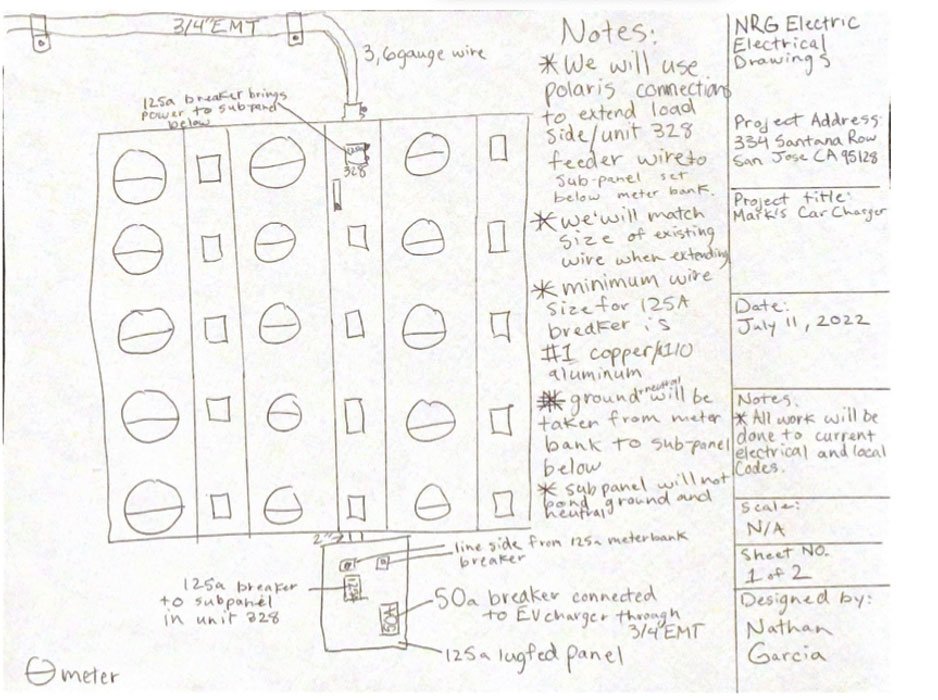 3/4" EMT
3, 6 gauge wire
125a breaker brings
power to subpanel
below
328
2"
line side from 125a meterbank
breaker
125a breaker
to subpanel
in unit 328
50A
50a breaker connected
to EV charger through
3/4" EMT
125a lugfed panel
meter
Notes:
* We will use
polaris connections
to extend load
side/unit 328
feeder wire to
sub-panel set
below meter bank.
* we will match
size of existing
wire when extending
* minimum wire
size for 125A
breaker is
#1 copper/#1/0
aluminum
* ground + neutral will be
taken from meter
bank to sub-panel
below
* sub panel will not
bond ground and
neutral
NRG Electric
Electrical
Drawings
Project Address:
334 Santana Row
San Jose CA 95128
Project title:
Mark's Car Charger
Date:
July 11, 2022
Notes:
* All work will be
done to current
electrical and local
Codes.
Scale:
N/A
Sheet NO.
1 of 2
Designed by:
Nathan
Garcia